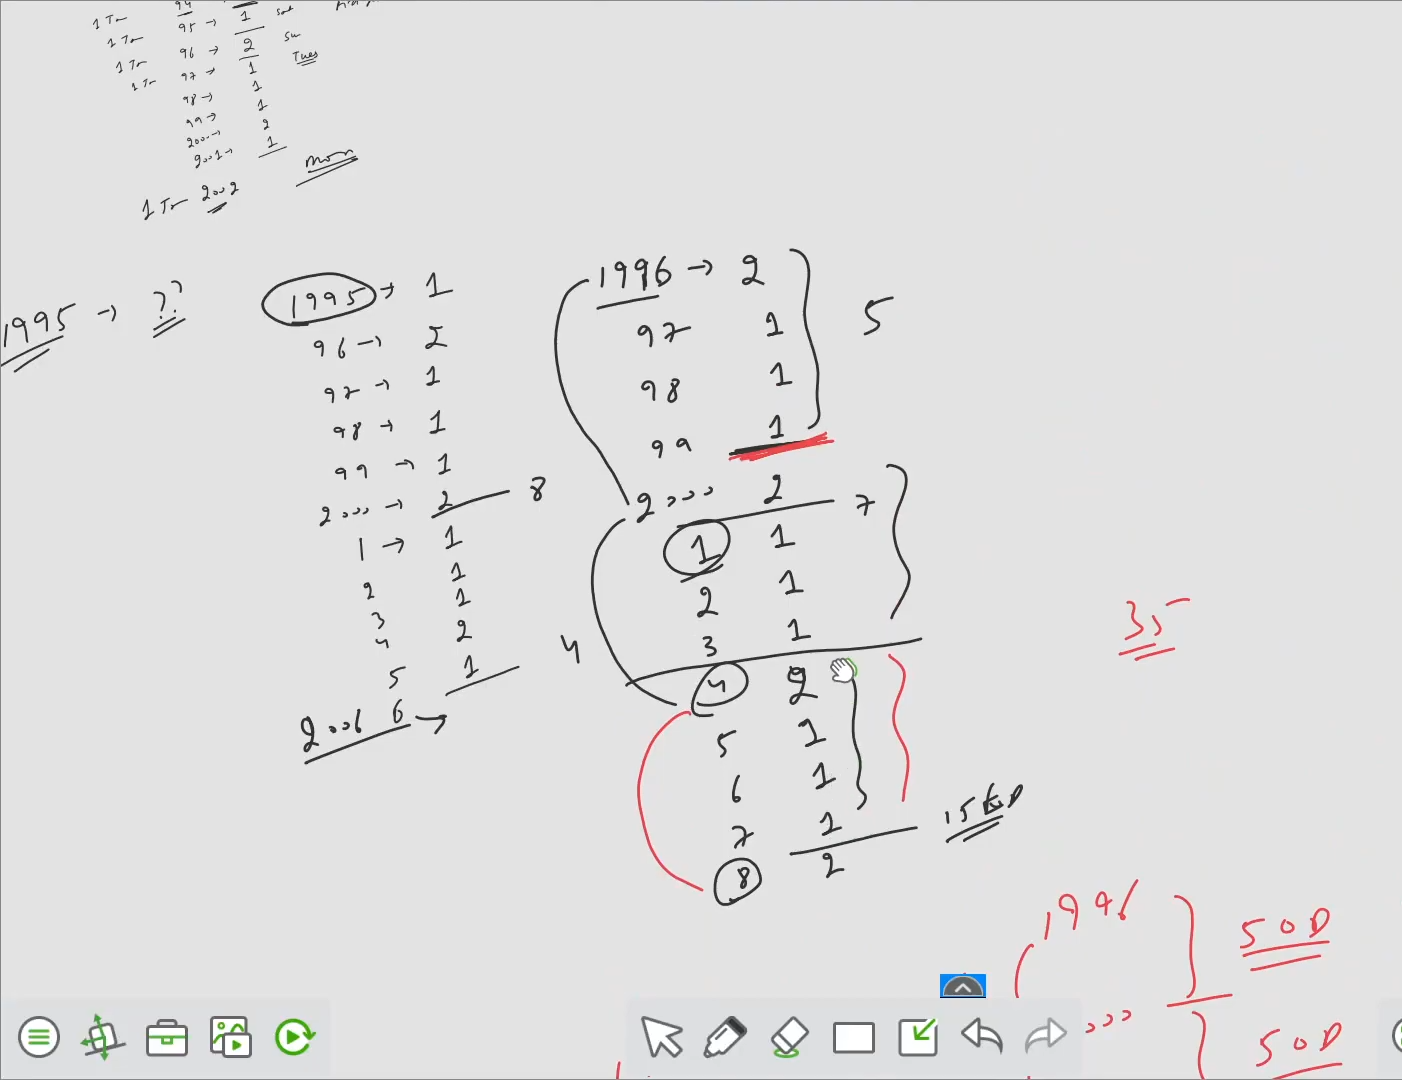 94
1 Jan 95 → 1 Sat
1 Jan 96 → 2 Su
1 Jan 97 → 1 Tues
1 Jan 98 → 1
99 → 1
2000 → 2
2001 → 1
1 Jan 2002 Mon
1995 → ??
1995 → 1
96 → 2
97 → 1
98 → 1
99 → 1
2000 → 2 8
1 → 1
2 1
3 1
4 2
5 1 4
2006 6 →
1996 → 2
97 1 5
98 1
99 1
2000 2 7
1 1
2 1
3 1
4 2
5 1
6 1
7 1 15
8 2
35
1996 5 OD
000 5 OD